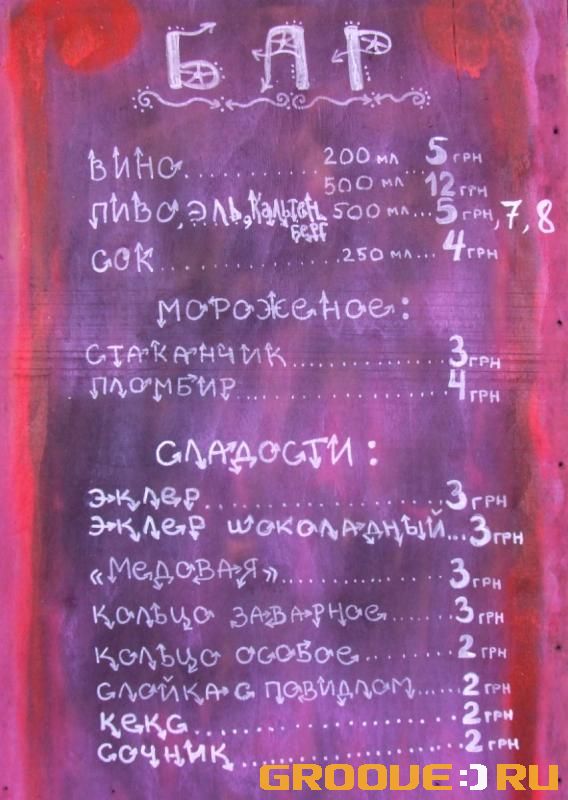 БАР
ВИНО 200 мл 5 ГРН
500 мл 12 ГРН
ПИВО, ЭЛЬ, Кальтенберг 500 мл... 5 ГРН, 7, 8
СОК 250 мл... 4 ГРН
МОРОЖЕНОЕ:
СТАКАНЧИК 3 ГРН
ПЛОМБИР 4 ГРН
СЛАДОСТИ:
ЭКЛЕР 3 ГРН
ЭКЛЕР ШОКОЛАДНЫЙ... 3 ГРН
«МЕДОВАЯ» 3 ГРН
КОЛЬЦО ЗАВАРНОЕ 3 ГРН
КОЛЬЦО ОСОБОЕ 2 ГРН
СЛОЙКА С ПОВИДЛОМ 2 ГРН
КЕКС 2 ГРН
СОЧНИК 2 ГРН
GROOVE:)RU